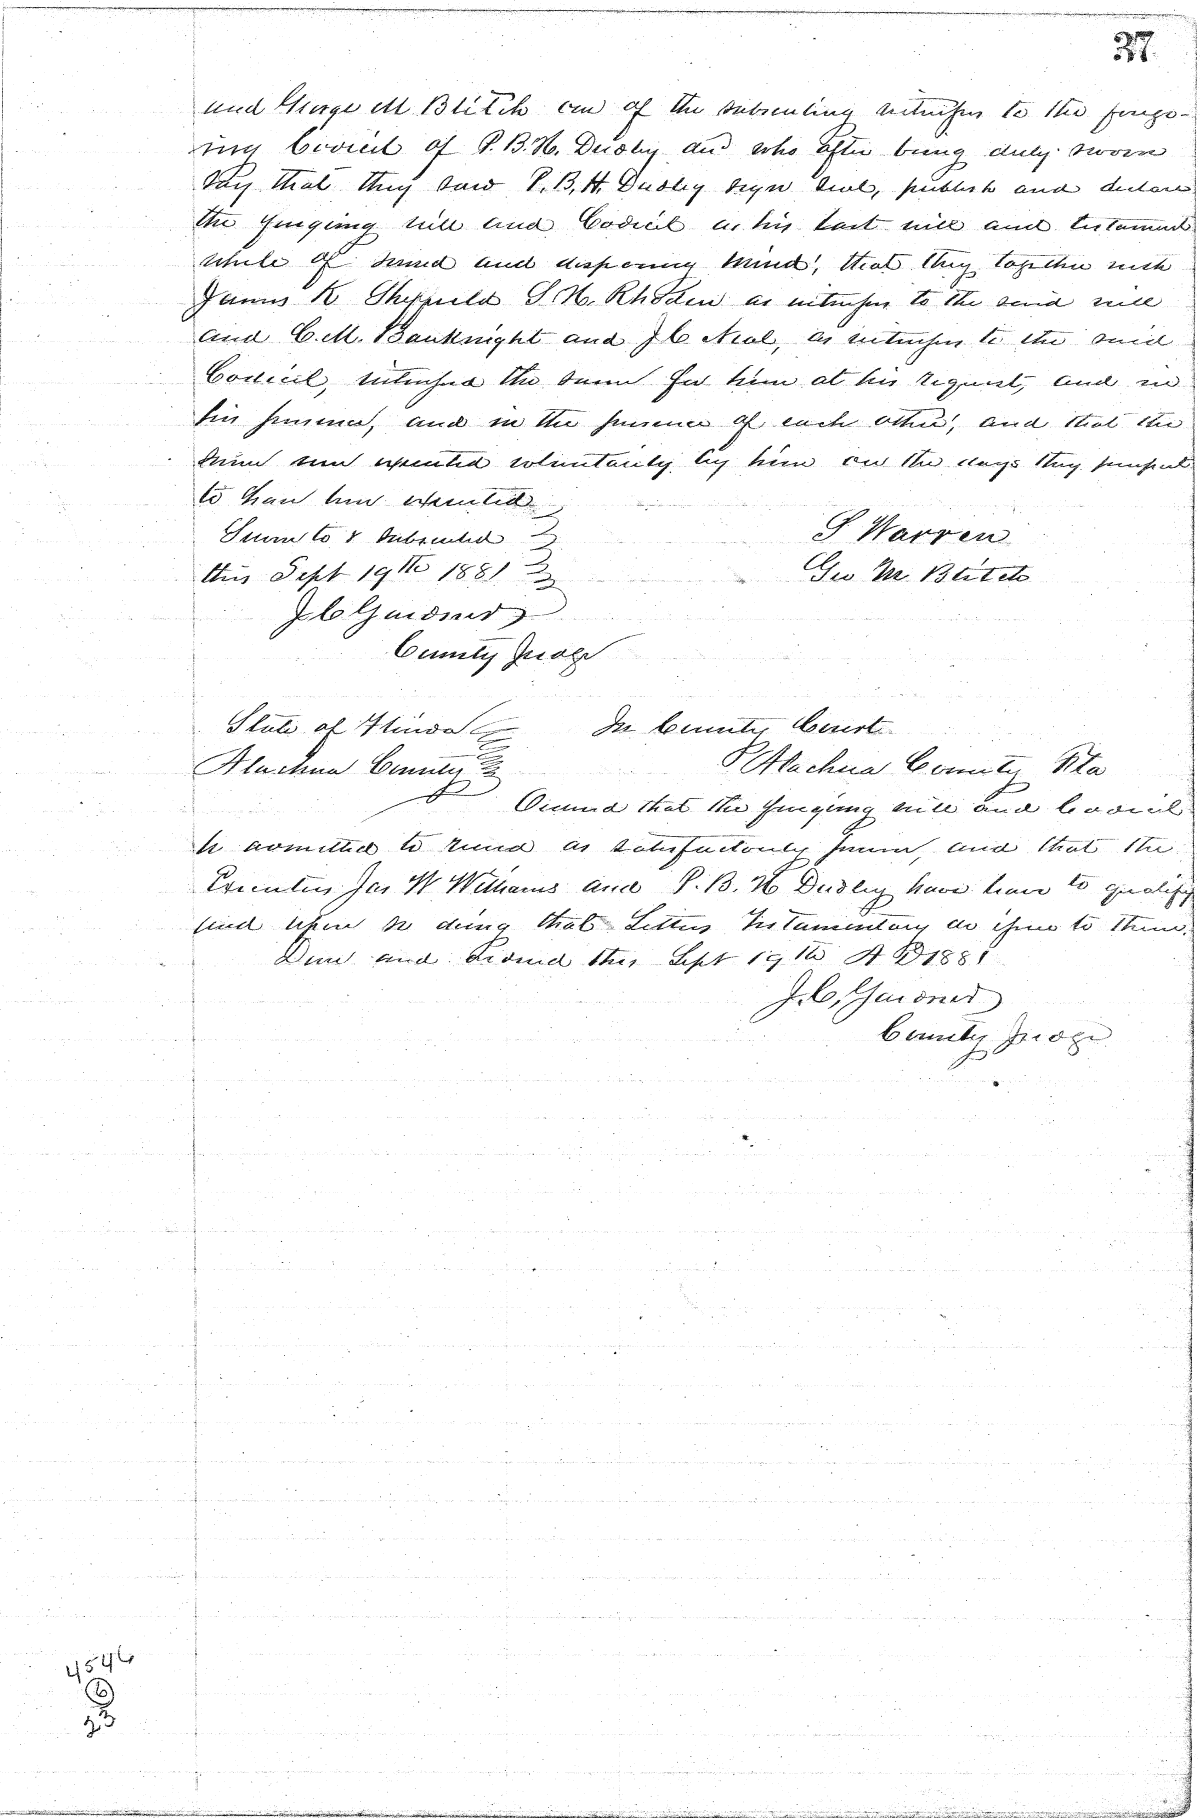 37
and George M Blitch one of the subscribing witnesses to the forego-
ing Codicil of P. B. H. Dudley and who after being duly sworn
say that they saw P. B. H. Dudley sign seal, publish and declare
the foregoing will and Codicil as his last will and testament
while of sound and disposing mind, that they together with
James K Sheffield S. H. Rhoden as witnesses to the said will
and C. M. Bauknight and J C Neal, as witnesses to the said
Codicil, witnessed the same for him at his request, and in
his presence, and in the presence of each other, and that the
same was executed voluntarily by him on the days they purport
to have been executed
Sworn to & subscribed
S Warren
this Sept 19th 1881
Geo M. Blitch
J C Gardner
County Judge
State of Florida In County Court
Alachua County Alachua County Fla
Ordered that the foregoing will and Codicil
be admitted to record as satisfactorily proven, and that the
Executors Jas W Williams and P. B. H Dudley have leave to qualify
and upon so doing that Letters Testamentary do issue to them.
Done and Ordered this Sept 19th A D 1881
J. C. Gardner
County Judge
4546
6
23